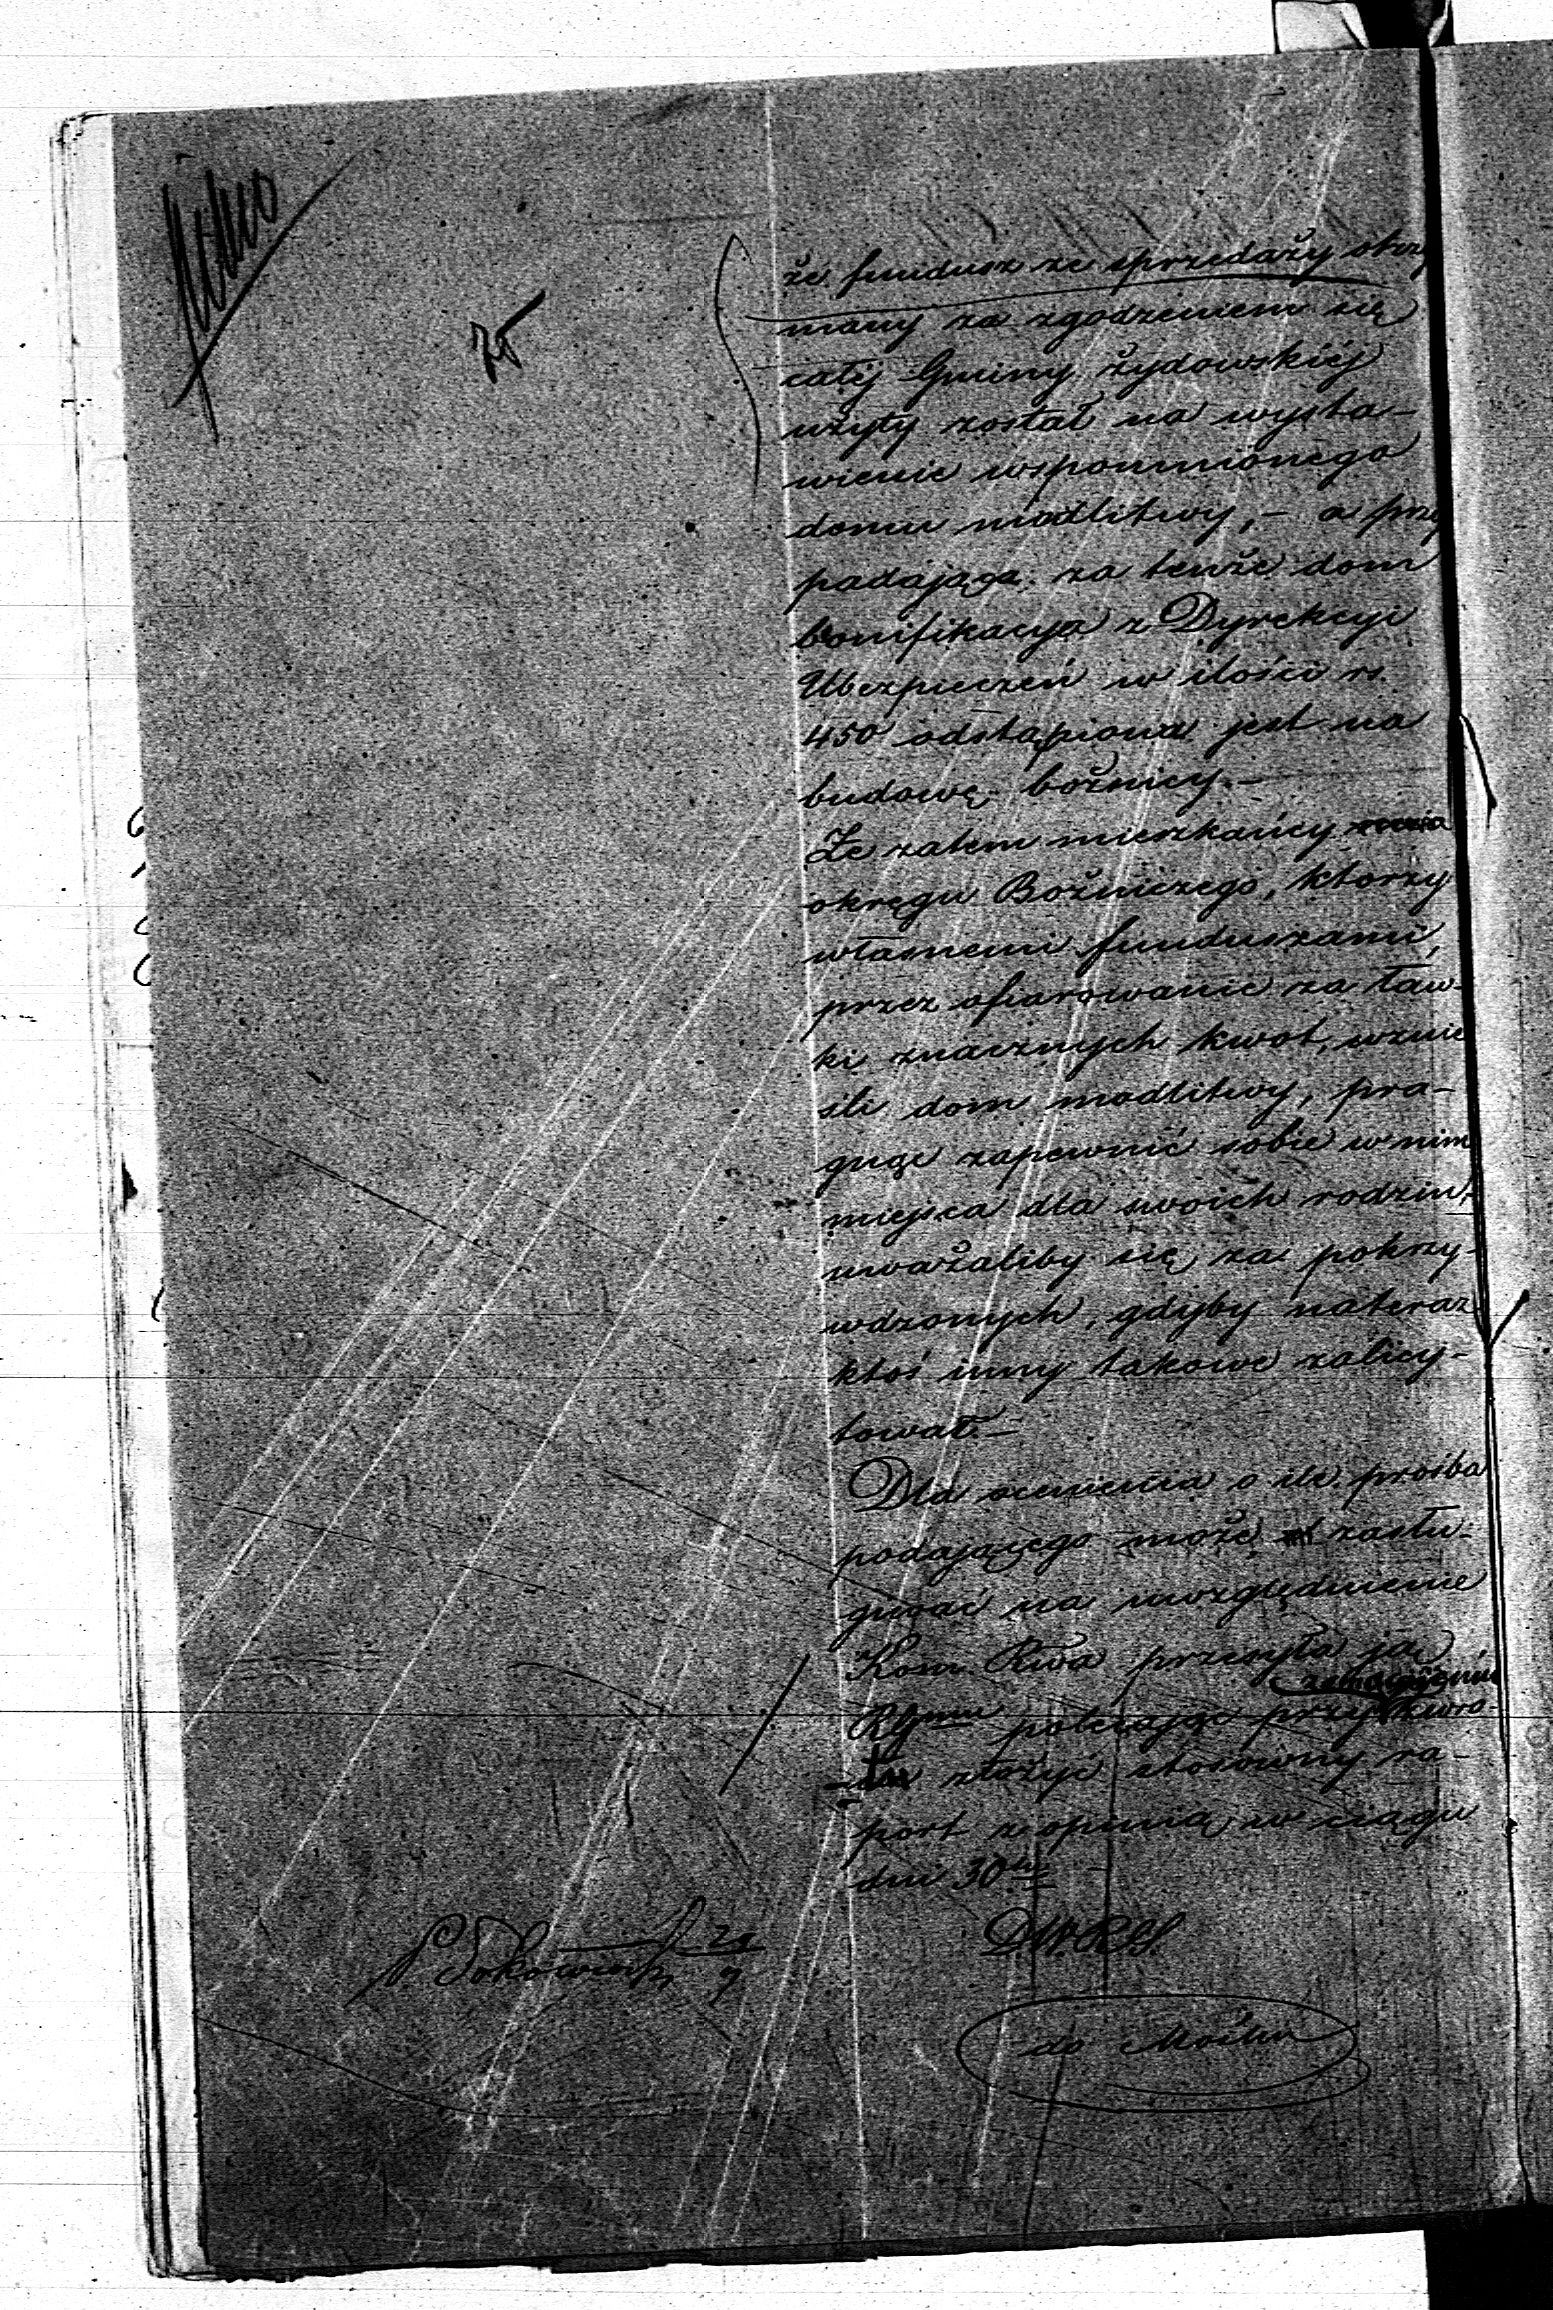 że fundusz ze sprzedaży otrzy
many za zgodzeniem się
całéj Gminy Żydowskiéj
użyty został na wysta-
wienie wspomnionego
domu modlitwy, - a przy
padająca za tenże dom
bonifikacya z Dyrekcyi
Ubezpieczeń w ilości rs.
450 odstąpiona jest na
budowę bożnicy. -
Że zatem mieszkańcy
okręgu Bożniczego, którzy
własnemi funduszami,
przez ofiarowanie za ław-
ki znacznych kwot, wznie
śli dom modlitwy, pra-
gnąc zapewnić sobie w nim
miejsca dla swoich rodzin,
uważaliby się za pokrzy-
wdzonych, gdyby nateraz
ktoś inny takowe zalicy-
tował. -
Dla ocenienia o ile prośba
podającego może zasłu-
giwać na uwzględnienie
Kom. Rwa przesyła ją
polecając przy zwro-
złożyć stosowny ra-
port z opinią w ciągu
dni 30tu
20
9
do